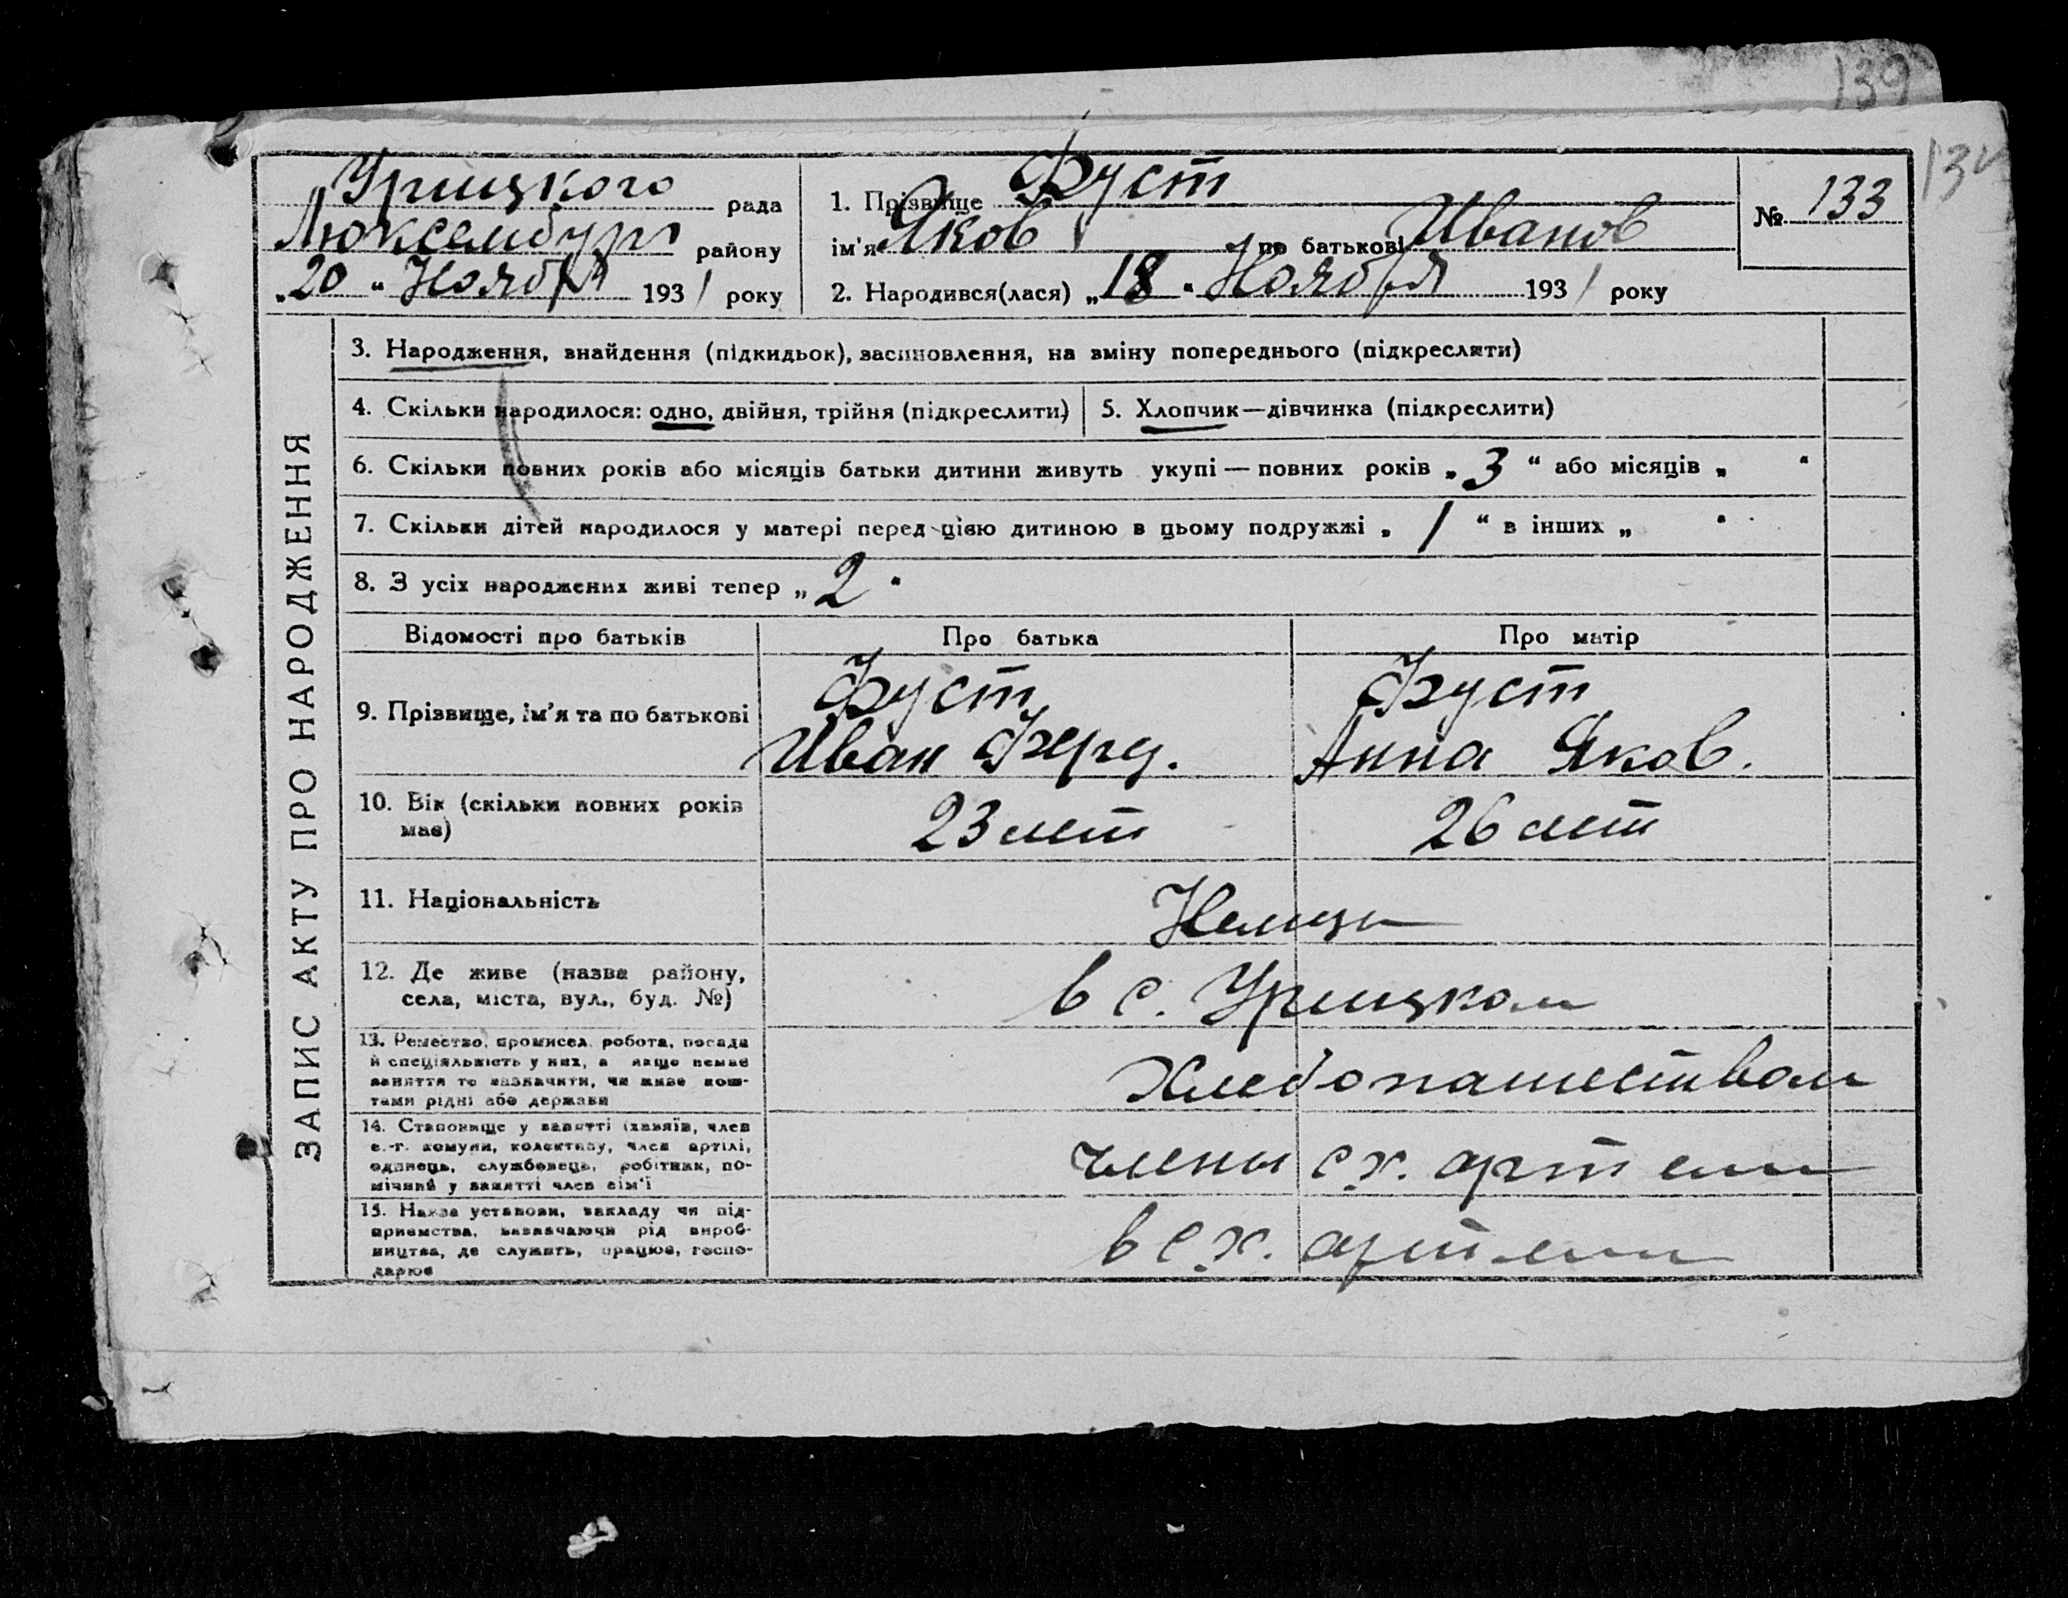 139
Урицкого рада
Люксембург району
„20“ Ноября 1931 року
1. Прізвище Фуст
ім'я Яков по батькові Иванов
2. Народився(лася) „18“ Ноября 1931 року
№ 133
ЗАПИС АКТУ ПРО НАРОДЖЕННЯ
3. Народження, знайдення (підкидьок), засиновлення, на зміну попереднього (підкреслити)
4. Скільки народилося: одно, двійня, трійня (підкреслити)
5. Хлопчик—дівчинка (підкреслити)
6. Скільки повних років або місяців батьки дитини живуть укупі — повних років „3“ або місяців „ “
7. Скільки дітей народилося у матері перед цією дитиною в цьому подружжі „1“ в інших „ “
8. З усіх народжених живі тепер „2“
Відомості про батьків
Про батька
Про матір
9. Прізвище, ім'я та по батькові
Фуст
Иван Ферд.
Фуст
Анна Яков.
10. Вік (скільки повних років
має)
23 лет
26 лет
11. Національність
Немцы
12. Де живе (назва району,
села, міста, вул., буд. №)
в с. Урицком
13. Ремество, промисел, робота, посада
й спеціяльність у них, а якщо немає
заняття то зазначити, чи живе кош-
тами рідні або держави
Хлебопашеством
14. Становище у занятті (хазяїн, член
с.-г. комуни, колективу, член артілі,
одинець, службовець, робітник, по-
мічний у занятті член сім'ї
члены с.х. артели
15. Назва установи, закладу чи під-
приємства, зазначаючи рід вироб-
ництва, де служить, працює, госпо-
дарює
в с.х. артели